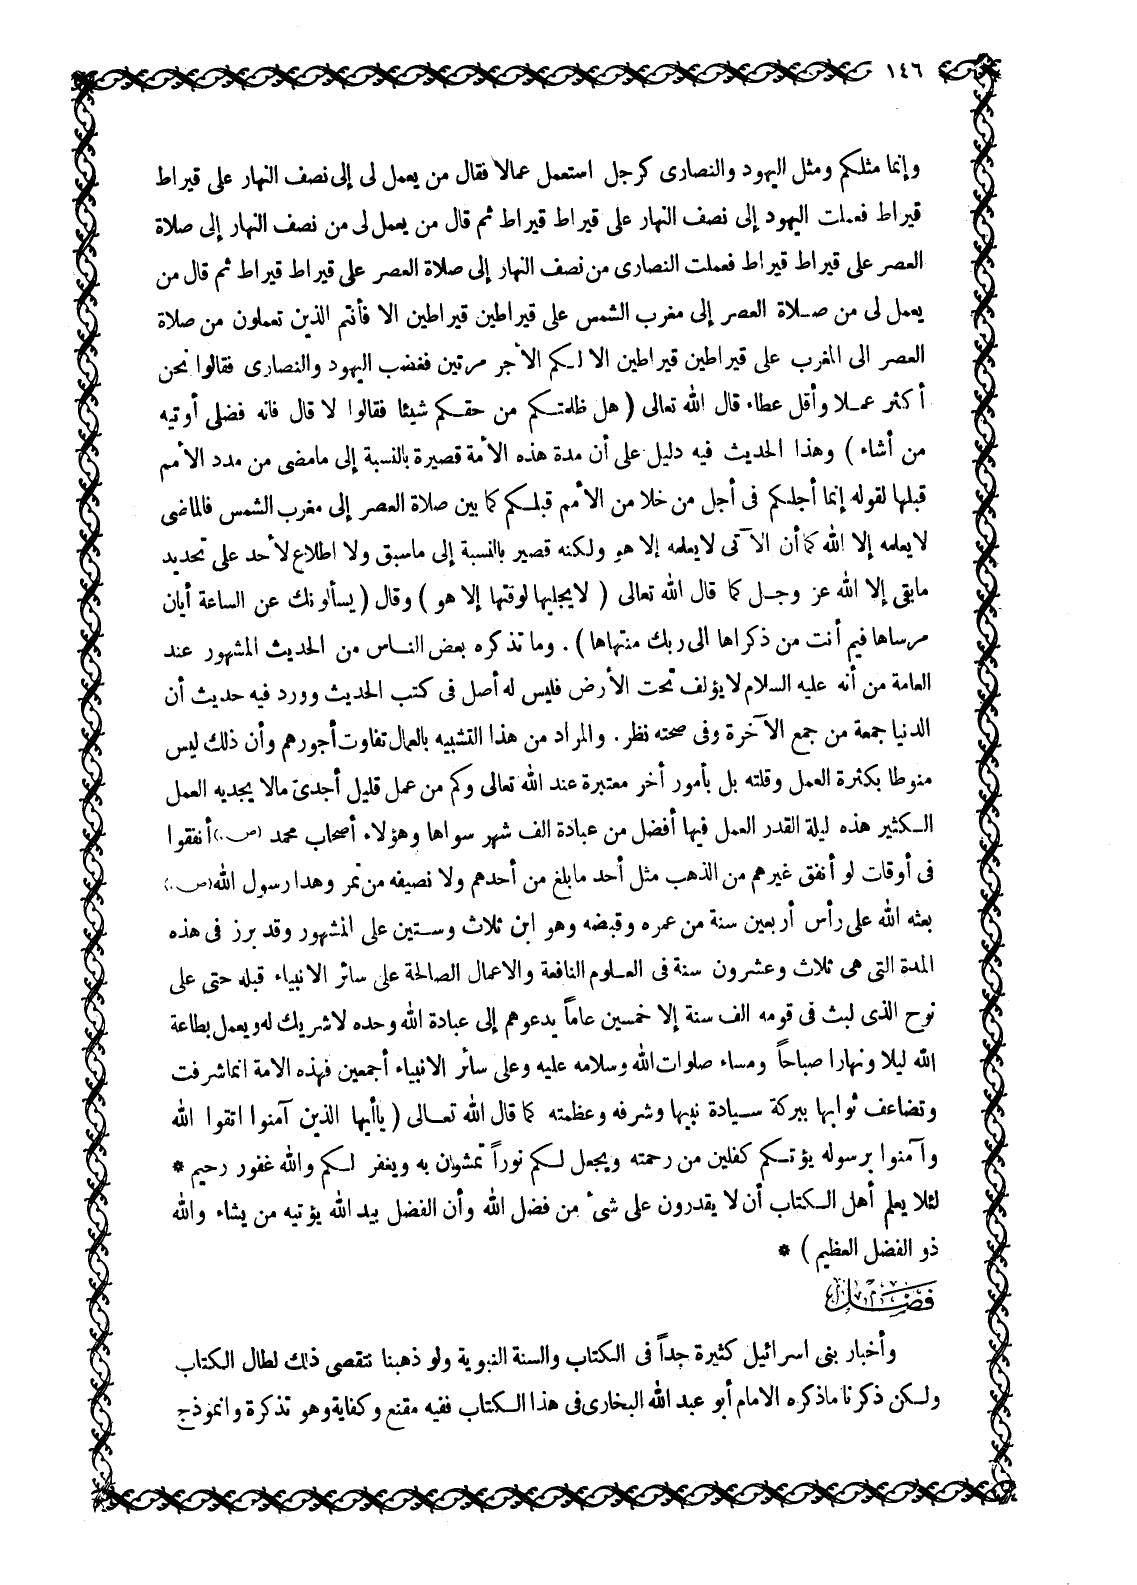 ١٤٦
وإنما مثلكم ومثل اليهود والنصارى كرجل استعمل عمالا فقال من يعمل لى إلى نصف النهار على قيراط
قيراط فعملت اليهود إلى نصف النهار على قيراط قيراط ثم قال من يعمل لى من نصف النهار إلى صلاة
العصر على قيراط قيراط فعملت النصارى من نصف النهار إلى صلاة العصر على قيراط قيراط ثم قال من
يعمل لى من صلاة العصر إلى مغرب الشمس على قيراطين قيراطين الا فأنتم الذين تعملون من صلاة
العصر الى المغرب على قيراطين قيراطين الا لكم الأجر مرتين فغضب اليهود والنصارى فقالوا نحن
أكثر عملا وأقل عطاء قال الله تعالى ( هل ظلمتكم من حقكم شيئا فقالوا لا قال فانه فضلى أوتيه
من أشاء ) وهذا الحديث فيه دليل على أن مدة هذه الأمة قصيرة بالنسبة إلى مامضى من مدد الأمم
قبلها لقوله إنما أجلكم فى أجل من خلا من الأمم قبلكم كما بين صلاة العصر إلى مغرب الشمس فالماضى
لايعلمه إلا الله كما أن الآتى لايعلمه إلا هو ولكنه قصير بالنسبة إلى ماسبق ولا اطلاع لأحد على تحديد
مابقى إلا الله عز وجل كما قال الله تعالى ( لايجليها لوقتها إلا هو ) وقال ( يسألونك عن الساعة أيان
مرساها فيم أنت من ذكراها الى ربك منتهاها ) . وما تذكره بعض الناس من الحديث المشهور عند
العامة من أنه عليه السلام لا يؤلف تحت الأرض فليس له أصل فى كتب الحديث وورد فيه حديث أن
الدنيا جمعة من جمع الآخرة وفى صحته نظر . والمراد من هذا التشبيه بالعمال تفاوت أجورهم وأن ذلك ليس
منوطا بكثرة العمل وقلته بل بأمور أخر معتبرة عند الله تعالى وكم من عمل قليل أجدى مالا يجديه العمل
الكثير هذه ليلة القدر العمل فيها أفضل من عبادة الف شهر سواها وهؤلاء أصحاب محمد (ص.) أنفقوا
فى أوقات لو أنفق غيرهم من الذهب مثل أحد مابلغ من أحدهم ولا نصيفه من تمر وهدا رسول الله (ص.)
بعثه الله على رأس أربعين سنة من عمره وقبضه وهو ابن ثلاث وستين على المشهور وقد برز فى هذه
المدة التى هى ثلاث وعشرون سنة فى العلوم النافعة والاعمال الصالحة على سائر الانبياء قبله حتى على
نوح الذى لبث فى قومه الف سنة إلا خمسين عاماً يدعوهم إلى عبادة الله وحده لاشريك له ويعمل بطاعة
الله ليلا ونهارا صباحاً ومساء صلوات الله وسلامه عليه وعلى سائر الانبياء أجمعين فهذه الامة انما شرفت
وتضاعف ثوابها ببركة سيادة نبيها وشرفه وعظمته كما قال الله تعالى ( ياأيها الذين آمنوا اتقوا الله
وآمنوا برسوله يؤتكم كفلين من رحمته ويجعل لكم نوراً تمشون به ويغفر لكم والله غفور رحيم *
لئلا يعلم أهل الكتاب أن لا يقدرون على شىء من فضل الله وأن الفضل بيد الله يؤتيه من يشاء والله
ذو الفضل العظيم ) *
فصل
وأخبار بنى اسرائيل كثيرة جداً فى الكتاب والسنة النبوية ولو ذهبنا نتقصى ذلك لطال الكتاب
ولكن ذكرنا ماذكره الامام أبو عبد الله البخارى فى هذا الكتاب ففيه مقنع وكفاية وهو تذكرة وانموذج